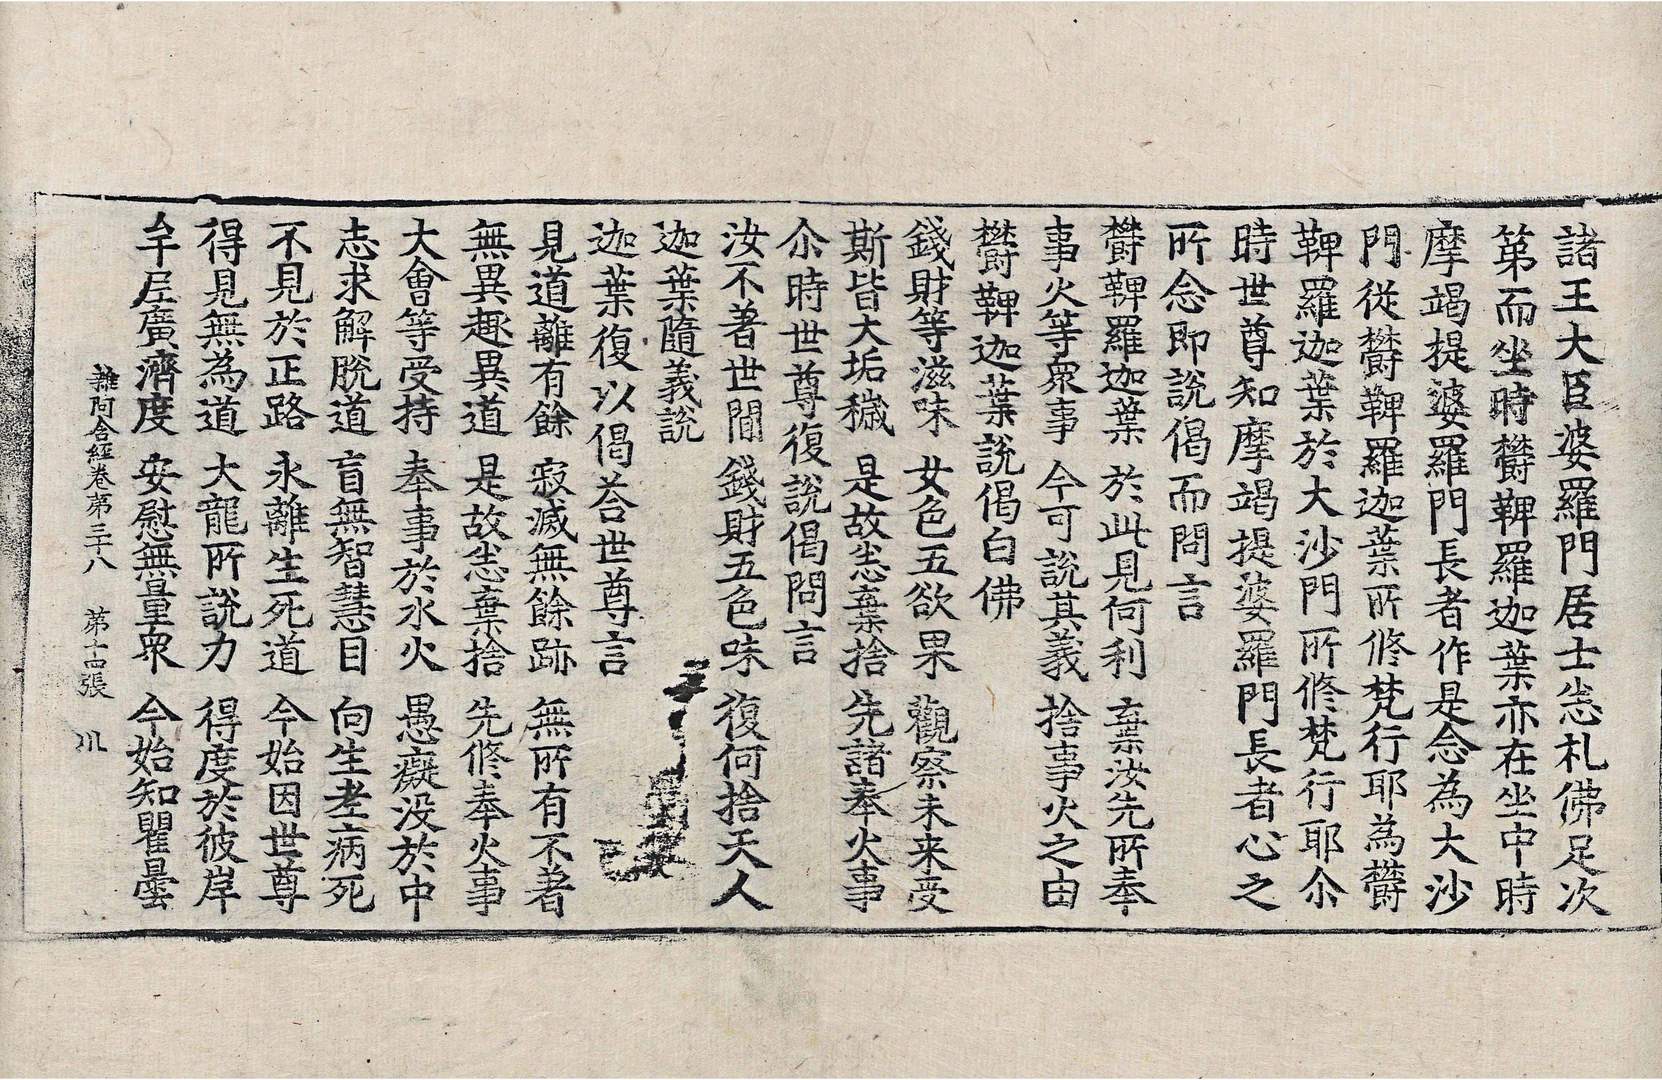 諸王大臣婆羅門居士悉礼佛足次
第而坐時欝鞞羅迦葉亦在坐中時
摩竭提婆羅門長者作是念為大沙
門從欝鞞羅迦葉所修梵行耶為欝
鞞羅迦葉於大沙門所修梵行耶尒
時世尊知摩竭提婆羅門長者心之
所念即說偈而問言
欝鞞羅迦葉 於此見何利 棄汝先所奉
事火等衆事 今可說其義 捨事火之由
欝鞞迦葉說偈白佛
錢財等滋味 女色五欲果 觀察未来受
斯皆大垢穢 是故悉棄捨 先諸奉火事
尒時世尊復說偈問言
汝不著世間 錢財五色味 復何捨天人
迦葉隨義說
迦葉復以偈荅世尊言
見道離有餘 寂滅無餘跡 無所有不著
無異趣異道 是故悉棄捨 先修奉火事
大會等受持 奉事於水火 愚癡没於中
志求解脫道 盲無智慧目 向生老病死
不見於正路 永離生死道 今始因世尊
得見無為道 大龍所說力 得度於彼岸
牟尼廣濟度 安慰無量衆 今始知瞿曇
雜阿含經卷第三十八 第十四張 川